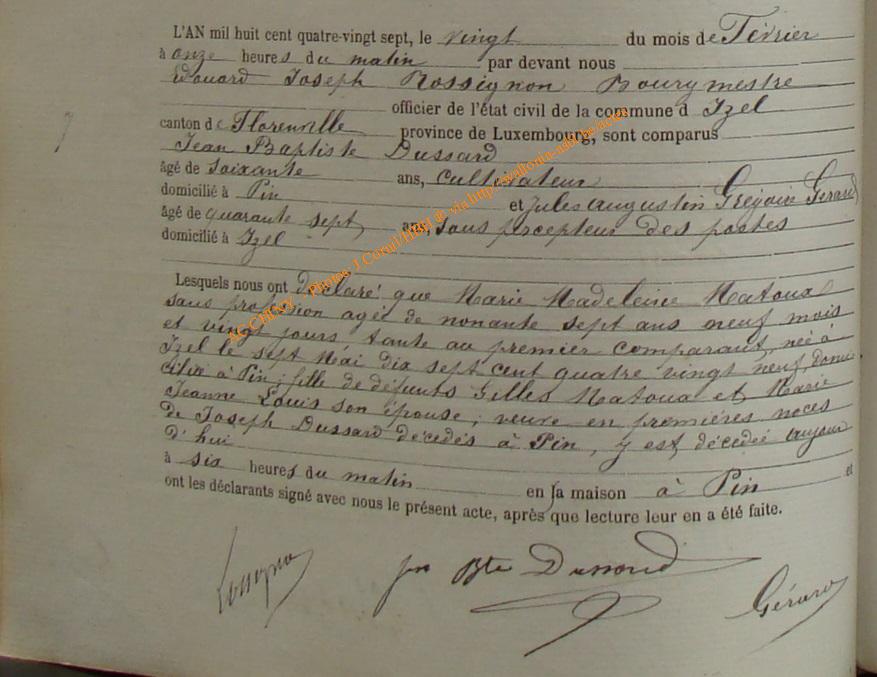 L'AN mil huit cent quatre-vingt sept, le vingt du mois de Février
à onze heures du matin par devant nous
Edouard Joseph Rossignon Bourgmestre
officier de l'état civil de la commune d Izel
canton de Florenville province de Luxembourg, sont comparus
Jean Baptiste Dussard
âgé de Soixante ans, cultivateur
domicilié à Pin et Jules Augustin Grégoire Gerard
âgé de quarante sept ans, Sous percepteur des postes
domicilié à Izel
Lesquels nous ont déclaré que Marie Madeleine Matoua
sans profession agée de nonante sept ans neuf mois
et vingt jours, tante au premier comparant, née à
Izel le sept Mai dix sept cent quatre vingt neuf, domi
ciliée à Pin; fille de défunts Gilles Matoua et Marie
Jeanne Louis son épouse; veuve en premières noces
de Joseph Dussard décédés à Pin, y est décédée aujour
d'hui
à six heures du matin en sa maison à Pin et
ont les déclarants signé avec nous le présent acte, après que lecture leur en a été faite.
Rossignon Jn Bte Dussard Gérard
AC CHINY - Photos J Cornil/HBH & via http://wallonia-asbl.be/actes